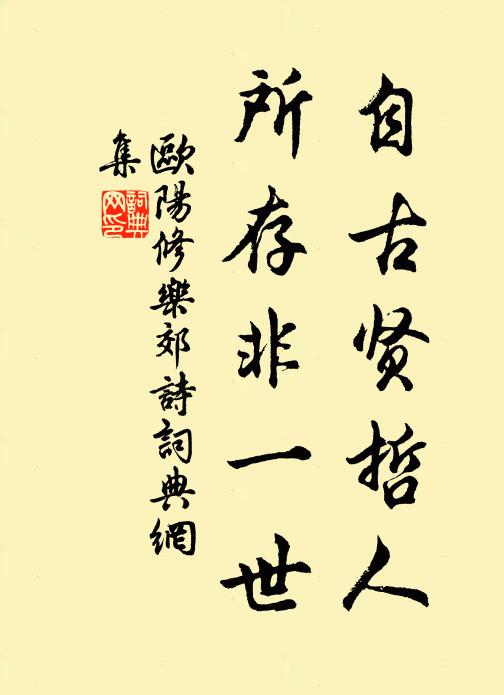 自古贤哲人
所存非一世
歐陽修樂郊詩詞典網
集
詞典
网印